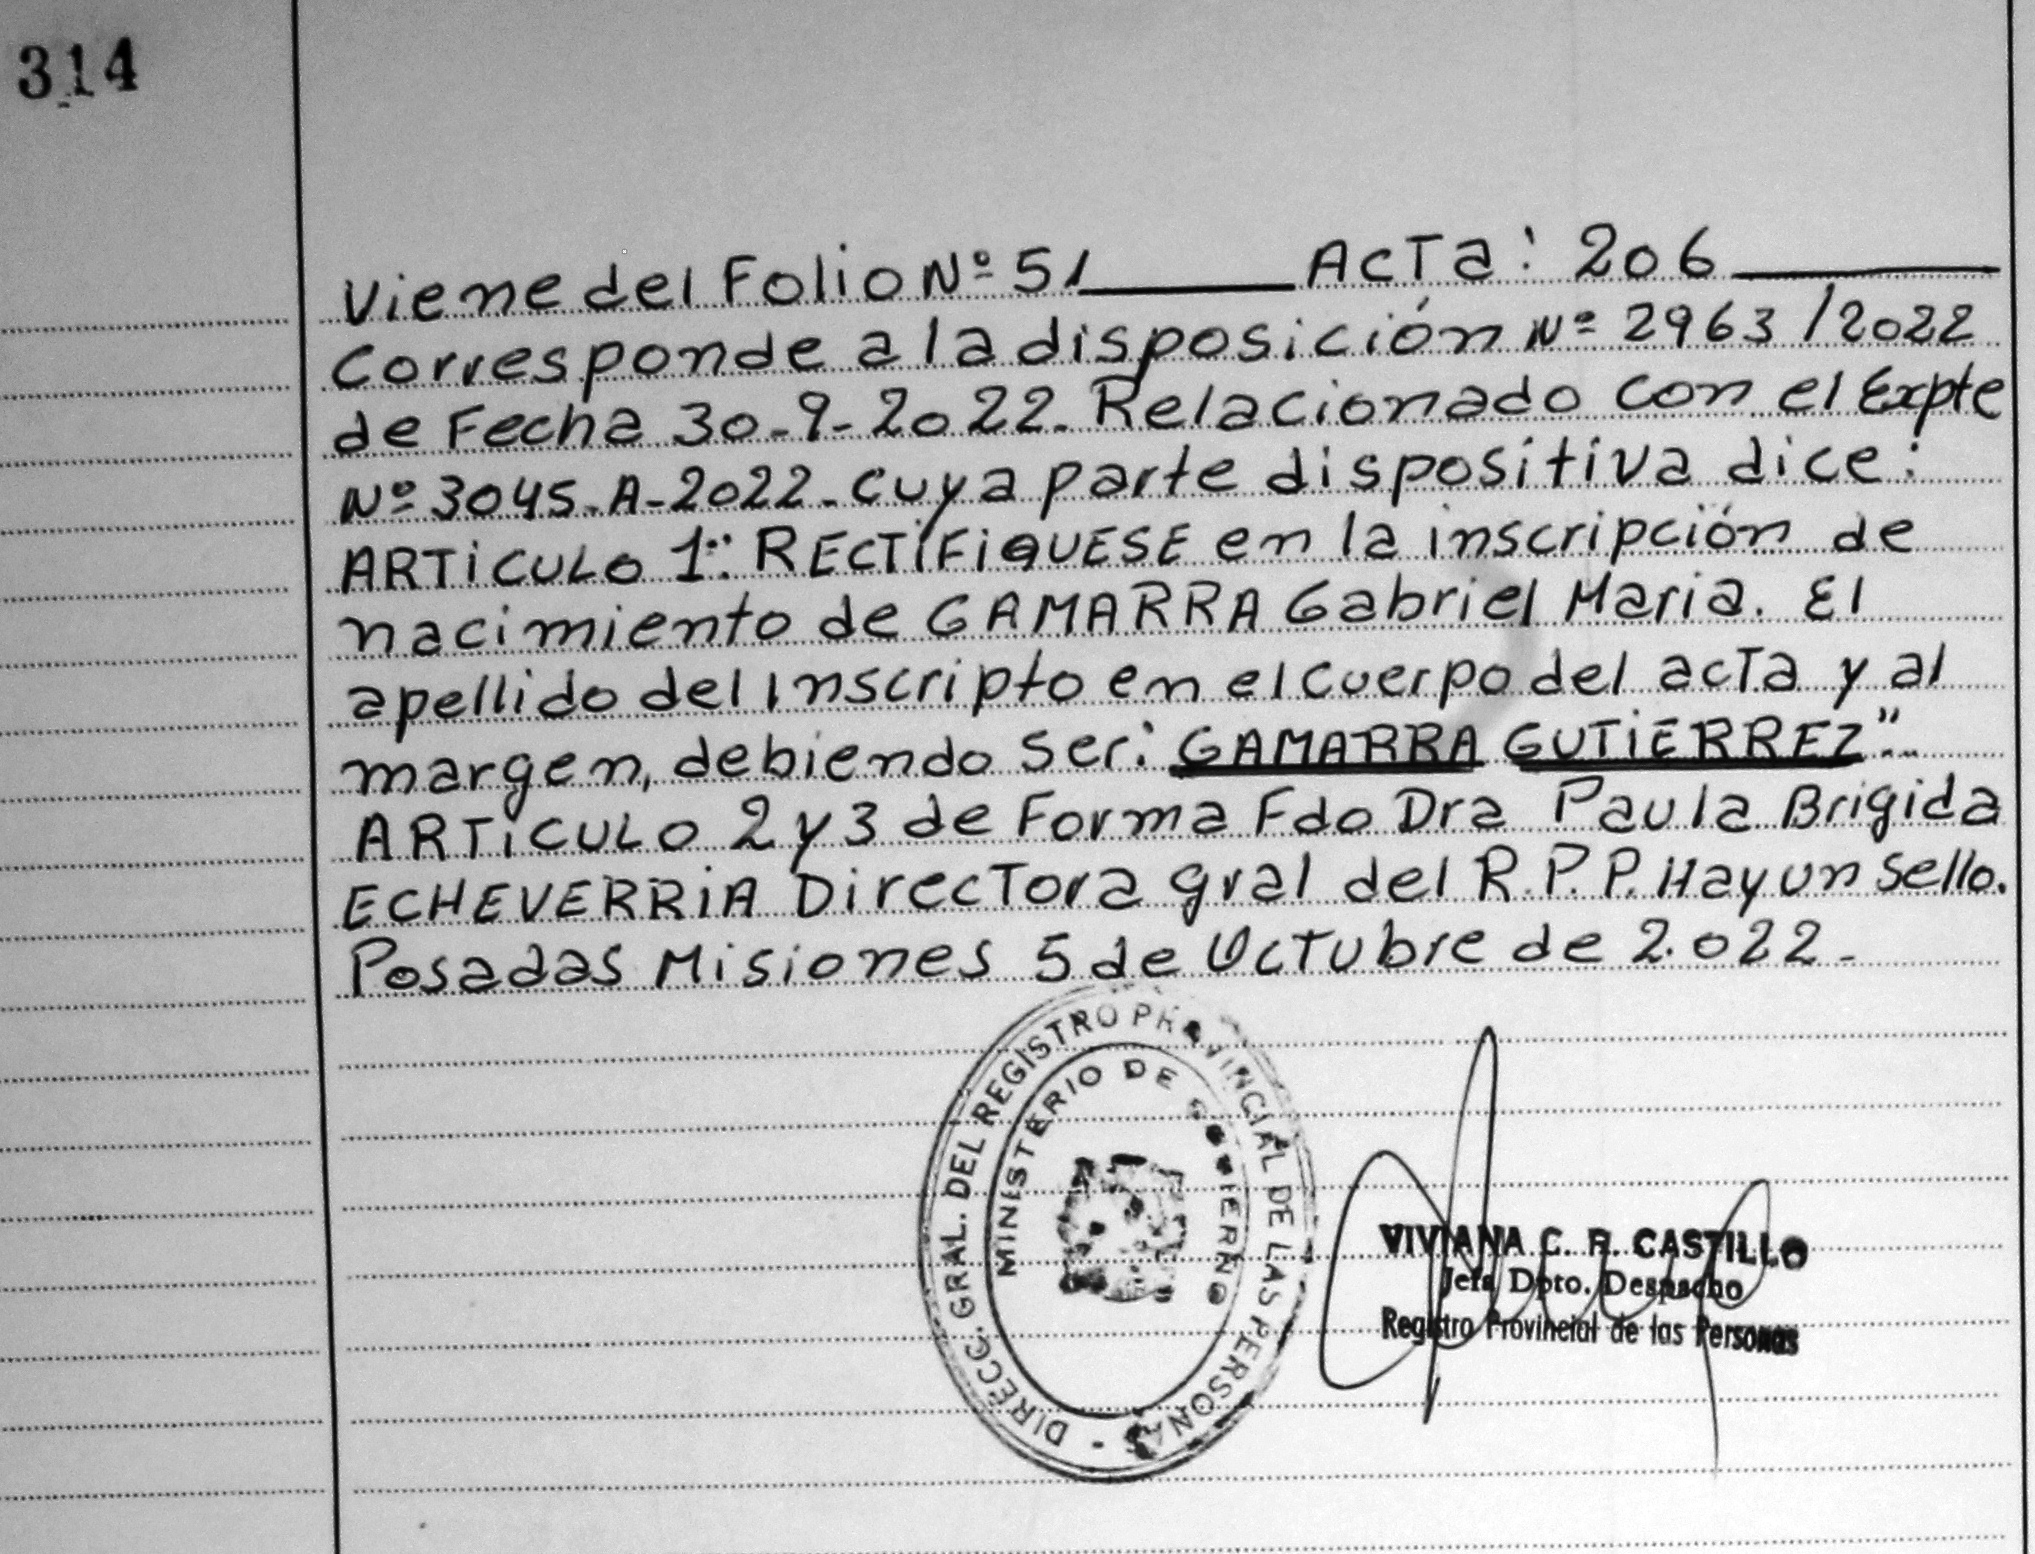 314
Viene del Folio Nº 51 ACTa: 206
Corresponde a la disposición Nº 2963/2022
de Fecha 30-9-2022. Relacionado con el Expte
Nº 3045-A-2022. cuya parte dispositiva dice:
ARTiCULO 1º: RECTiFiQUESE en la inscripción de
nacimiento de GAMARRA Gabriel Maria. El
apellido del inscripto en el cuerpo del acTa y al
margen, debiendo ser: GAMARRA GUTiERREZ"
ARTiCULO 2 y 3 de Forma Fdo Dra Paula Brigida
ECHEVERRiA DirecTora gral del R.P.P. Hay un Sello.
Posadas Misiones 5 de OcTubre de 2.022.-
DIRECC. GRAL. DEL REGISTRO PROVINCIAL DE LAS PERSONAS -
MINISTERIO DE GOBIERNO
VIVIANA C. R. CASTILLO
Jefa Dpto. Despacho
Registro Provincial de las Personas